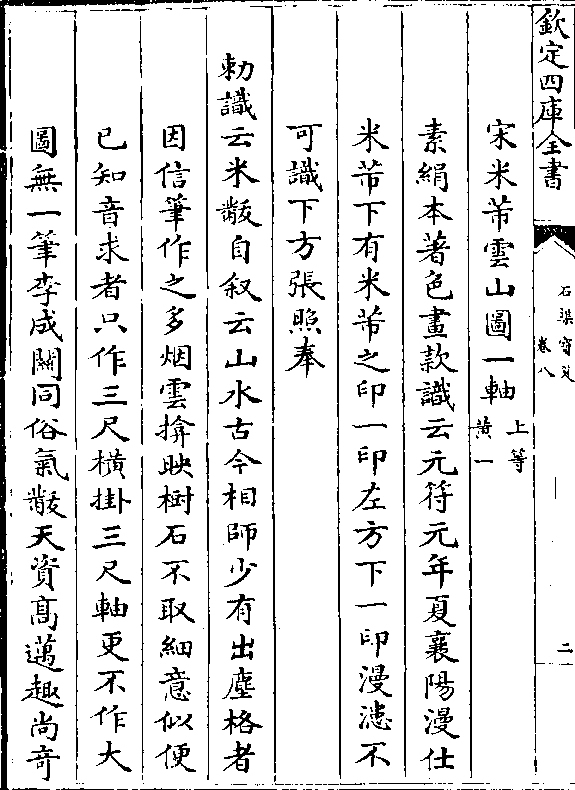 欽定四庫全書
石渠寳笈
卷八
二
宋米芾雲山圖一軸 上等 黄一
素絹本著色畫款識云元符元年夏襄陽漫仕
米芾下有米芾之印一印左方下一印漫漶不
可識下方張照奉
勅識云米黻自叙云山水古今相師少有出塵格者
因信筆作之多烟雲揜映樹石不取細意似便
已知音求者只作三尺橫掛三尺軸更不作大
圖無一筆李成關同俗氣黻天資髙邁趣尚竒